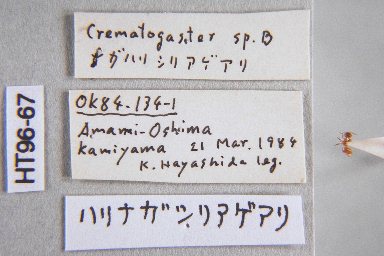 Crematogaster sp. B
fガハリシリアゲアリ
Ok84.134-1
Amami-Oshima
Kamiyama 21 Mar. 1984
K. Hayashida leg.
HT96-67
ハリナガシリアゲアリ